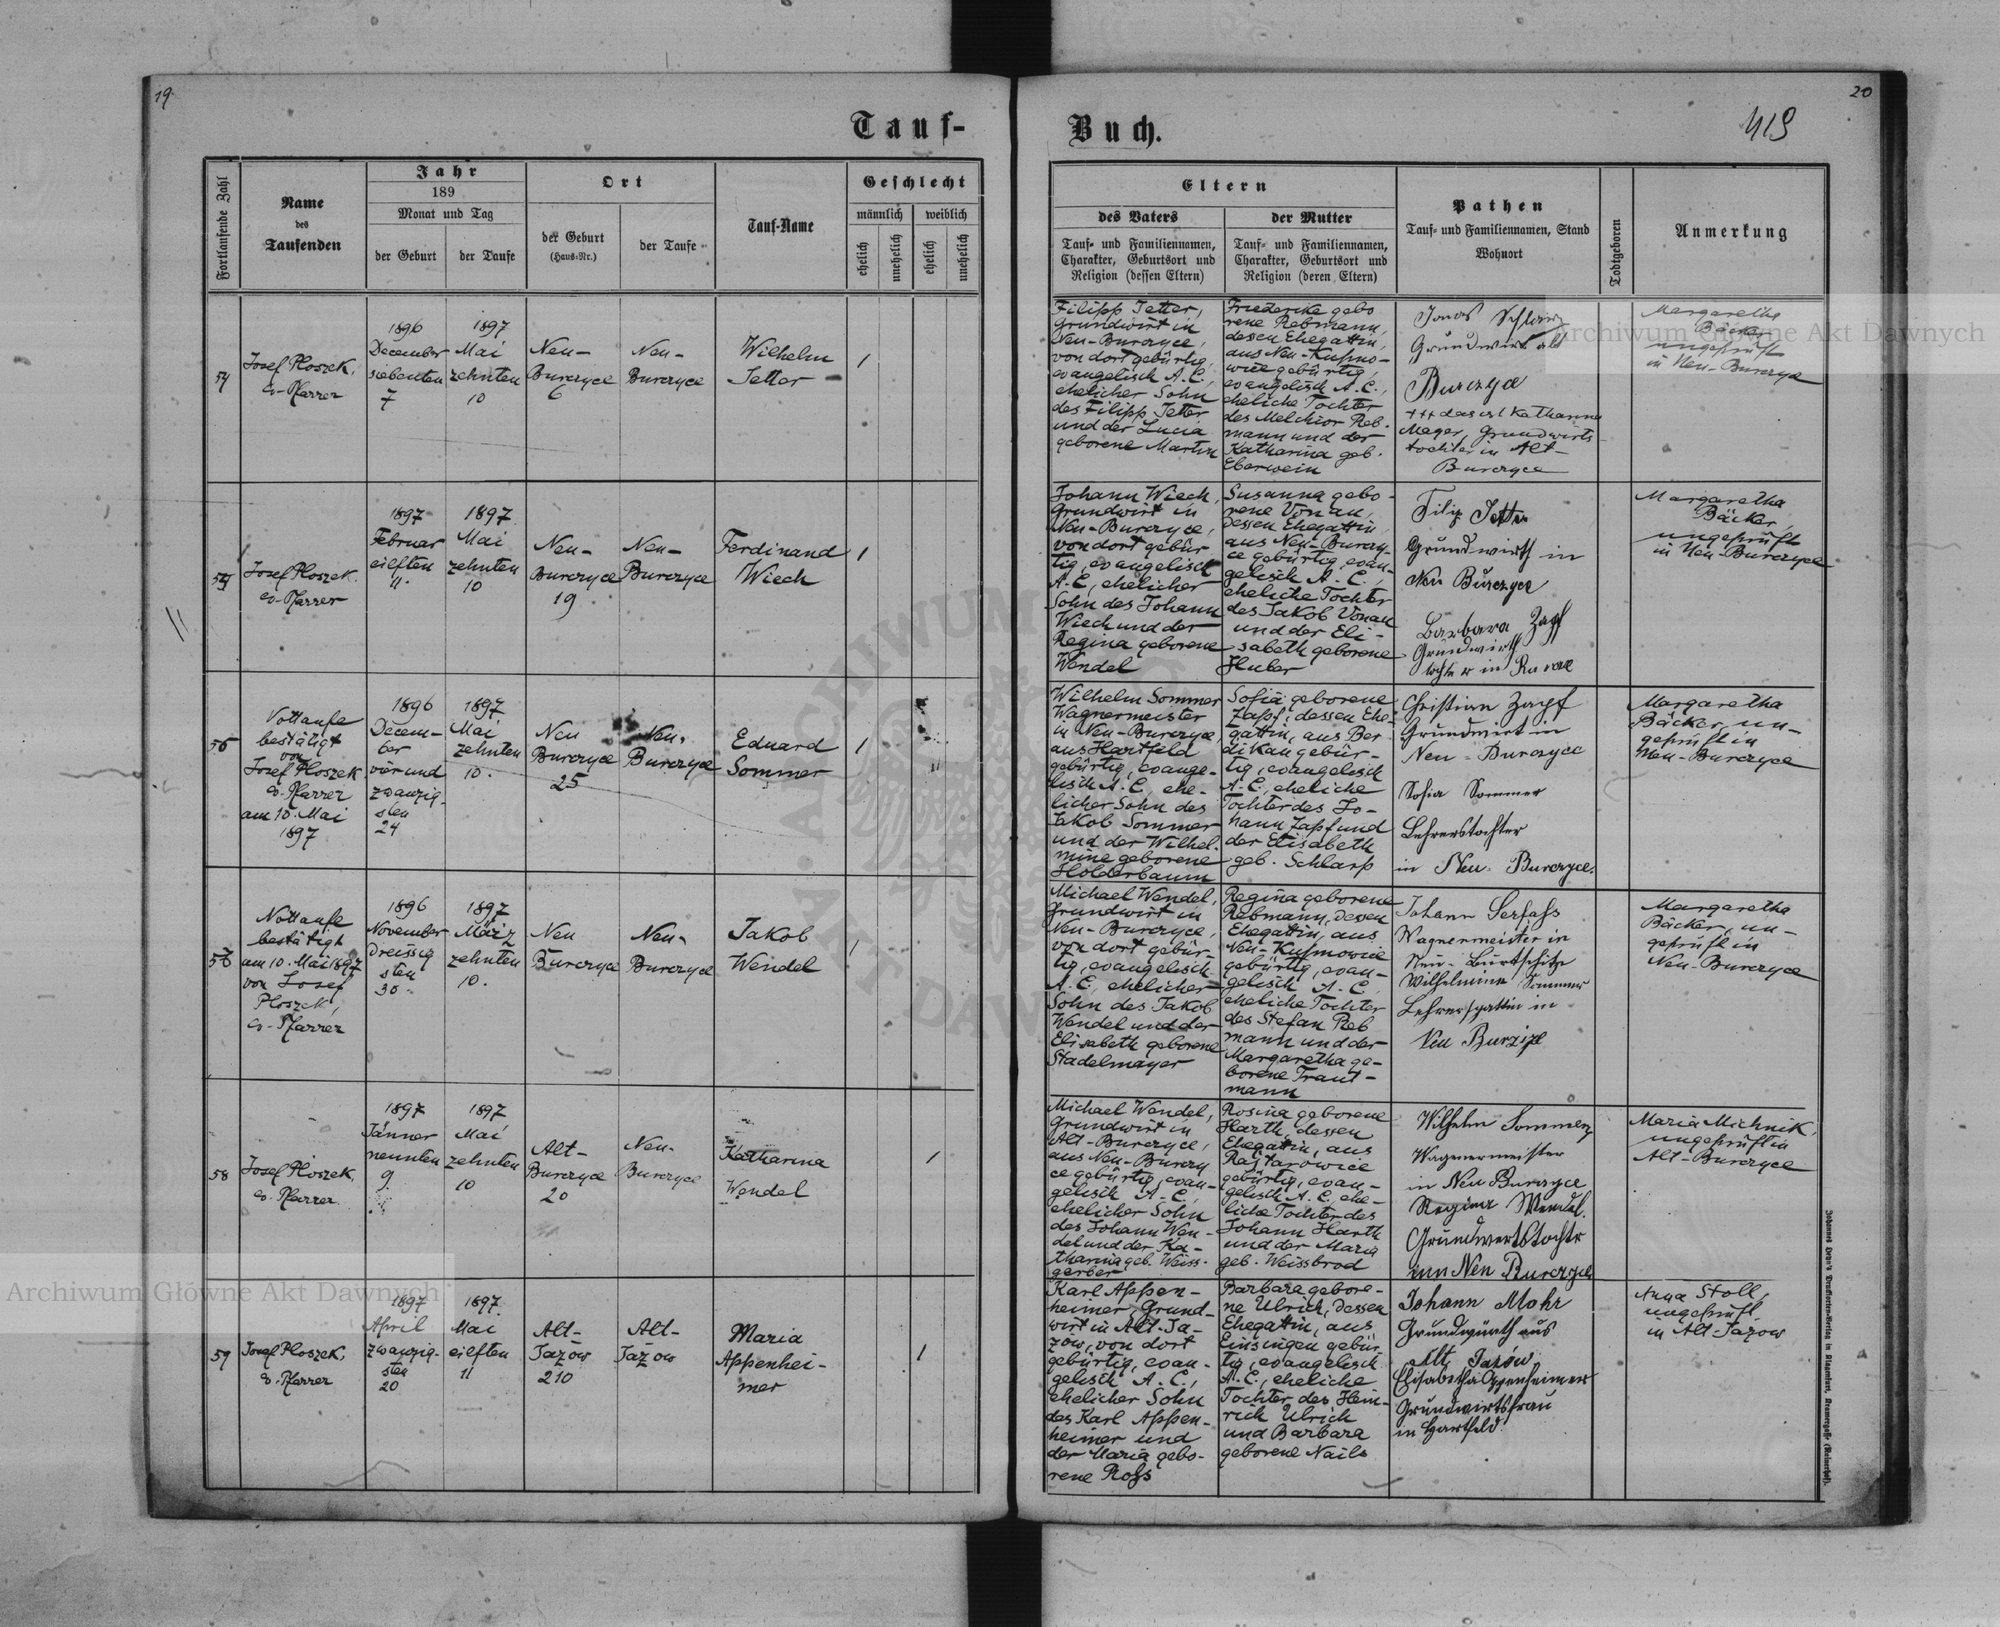 19.
20
419
Tauf-
Buch.
Fortlaufende Zahl
Name
des
Taufenden
Jahr
189
Monat und Tag
der Geburt
der Taufe
Ort
der Geburt
(Haus-Nr.)
der Taufe
Tauf-Name
Geschlecht
männlich
weiblich
ehelich
unehelich
ehelich
unehelich
Eltern
des Vaters
Tauf- und Familiennamen,
Charakter, Geburtsort und
Religion (dessen Eltern)
der Mutter
Tauf- und Familiennamen,
Charakter, Geburtsort und
Religion (deren Eltern)
Pathen
Tauf- und Familiennamen, Stand
Wohnort
Todtgeboren
Anmerkung
54
Josef Ploszek,
ev. Pfarrer
1896
December
siebenten
7
1897
Mai
zehnten
10
Neu-
Burczyce
6
Neu-
Burczyce
Wilhelm
Jetter
1
Filipp Jetter,
Grundwirt in
Neu-Burczyce,
von dort gebürtig,
evangelisch A.C.,
ehelicher Sohn
des Filipp Jetter
und der Lucia
geborene Martin
Friedericke gebo
rene Rebmann,
dessen Ehegattin,
aus Neu-Kupno-
wice gebürtig,
evangelisch A.C.,
eheliche Tochter
des Melchior Reb-
mann und der
Katharina geb.
Eberwein
Jonas
Grundwirt alt
Burczyce
+++ das ist Katharina
Meger, Grundwirts-
tochter in Alt-
Burczyce
Margaretha
Bäcker
ungeprüft
in Neu-Burczyce
55
Josef Ploszek.
ev. Pfarrer
1897
Februar
eilften
11.
1897
Mai
zehnten
10
Neu-
Burczyce
19
Neu-
Burczyce
Ferdinand
Wiech
1
Johann Wiech,
Grundwirt in
Neu-Burczyce,
von dort gebür
tig, evangelisch
A.C., ehelicher
Sohn des Johann
Wiech und der
Regina geborene
Wendel
Susanna gebo-
rene Vonau,
dessen Ehegattin,
aus Neu-Burczy-
ce gebürtig, evan-
gelisch A.C.,
eheliche Tochter
des Jakob Vonau
und der Eli-
sabeth geborene
Huber
Filip Jetter
Grundwirth in
Neu Burczyce
Barbara Zapf
Grundwirth
tochter in
Margaretha
Bäcker,
ungeprüft
in Neu-Burczyce
56
Nottaufe
bestätigt
von
Josef Ploszek
ev. Pfarrer
am 10. Mai
1897
1896
Decem-
ber
vier und
zwanzig-
sten
24
1897
Mai
zehnten
10.
Neu
Burczyce
25
Neu-
Burczyce
Eduard
Sommer
1
Wilhelm Sommer
Wagnermeister
in Neu-Burczyce,
aus Hartfeld
gebürtig, evange-
lisch A.C. ehe-
licher Sohn des
Jakob Sommer
und der Wilhel-
mine geborene
Holderbaum
Sofia geborene
Zapf, dessen Ehe-
gattin, aus Ber
dikau gebür-
tig, evangelisch
A.C., eheliche
Tochter des Jo-
hann Zapf und
der Elisabeth
geb. Schlarp
Christian Zapf
Grundwirt in
Neu-Burczyce
Sofia Sommer
Lehrerstochter
in Neu-Burczyce.
Margaretha
Bäcker, un-
geprüft in
Neu-Burczyce
Nottaufe
bestätigt
am 10. Mai 1897
von Josef
Ploszek,
ev. Pfarrer
1896
November
Dreissig
sten
30
1897
März
zehnten
10.
Neu
Burczyce
Neu-
Burczyce
Jakob
Wendel
1
Michael Wendel,
Grundwirt in
Neu-Burczyce,
von dort gebür-
tig, evangelisch
A.C., ehelicher
Sohn des Jakob
Wendel und der
Elisabeth geborene
Stadelmayer
Regina geborene
Rebmann, dessen
Ehegattin, aus
Neu-Kupnowice
gebürtig, evan-
gelisch A.C.
eheliche Tochter
des Stefan Reb
mann und der
Margaretha ge-
borene Traut-
mann
Johann Serfass
Wagnermeister in
Neu-Burtschitze
Wilhelmine Sommer
Lehrersgattin in
Neu Burzize
Margaretha
Bäcker, un-
geprüft in
Neu-Burczyce
58
Josef Ploszek,
ev. Pfarrer
1897
Jänner
neunten
9
1897
Mai
zehnten
10
Alt-
Burczyce
20
Neu-
Burczyce
Katharina
Wendel
1
Michael Wendel,
Grundwirt in
Alt-Burczyce,
aus Neu-Burczy
ce gebürtig, evan-
gelisch A.C.,
ehelicher Sohn
des Johann Wen-
del und der Ka-
tharina geb. Weiss-
gerber
Rosina geborene
Harth, dessen
Ehegattin, aus
Rajtarowice
gebürtig, evan-
gelisch A.C., ehe-
liche Tochter des
Johann Harth
und der Maria
geb. Weissbrod
Wilhelm Sommer
Wagnermeister
in Neu Burczyce
Regina Wendel.
Grundwertstochtr
inn Neu Burczyce
Maria Michnik,
ungeprüft in
Alt-Burczyce
59
Josef Ploszek,
ev. Pfarrer
1897
April
zwanzig-
sten
20
1897.
Mai
eilften
11
Alt-
Jazow
210
Alt-
Jazow
Maria
Appenhei-
mer
1
Karl Appen-
heimer Grund-
wirt in Alt-Ja-
zow, von dort
gebürtig, evan-
gelisch A.C.,
ehelicher Sohn
des Karl Appen-
heimer und
der Maria gebo-
rene Rofs
Barbara gebore-
ne Ulrich, dessen
Ehegattin, aus
Einsingen gebür
tig, evangelisch
A.C., eheliche
Tochter des Hein-
rich Ulrich
und Barbara
geborene Nails
Johann Mohr
Grundwürth aus
Alt Jazów
Elisabetha Oppenheimer
Grundwirtsfrau
in Hartfeld.
Anna Stoll,
ungeprüft,
in Alt-Jazow
Archiwum Główne Akt Dawnych
Archiwum Główne Akt Dawnych